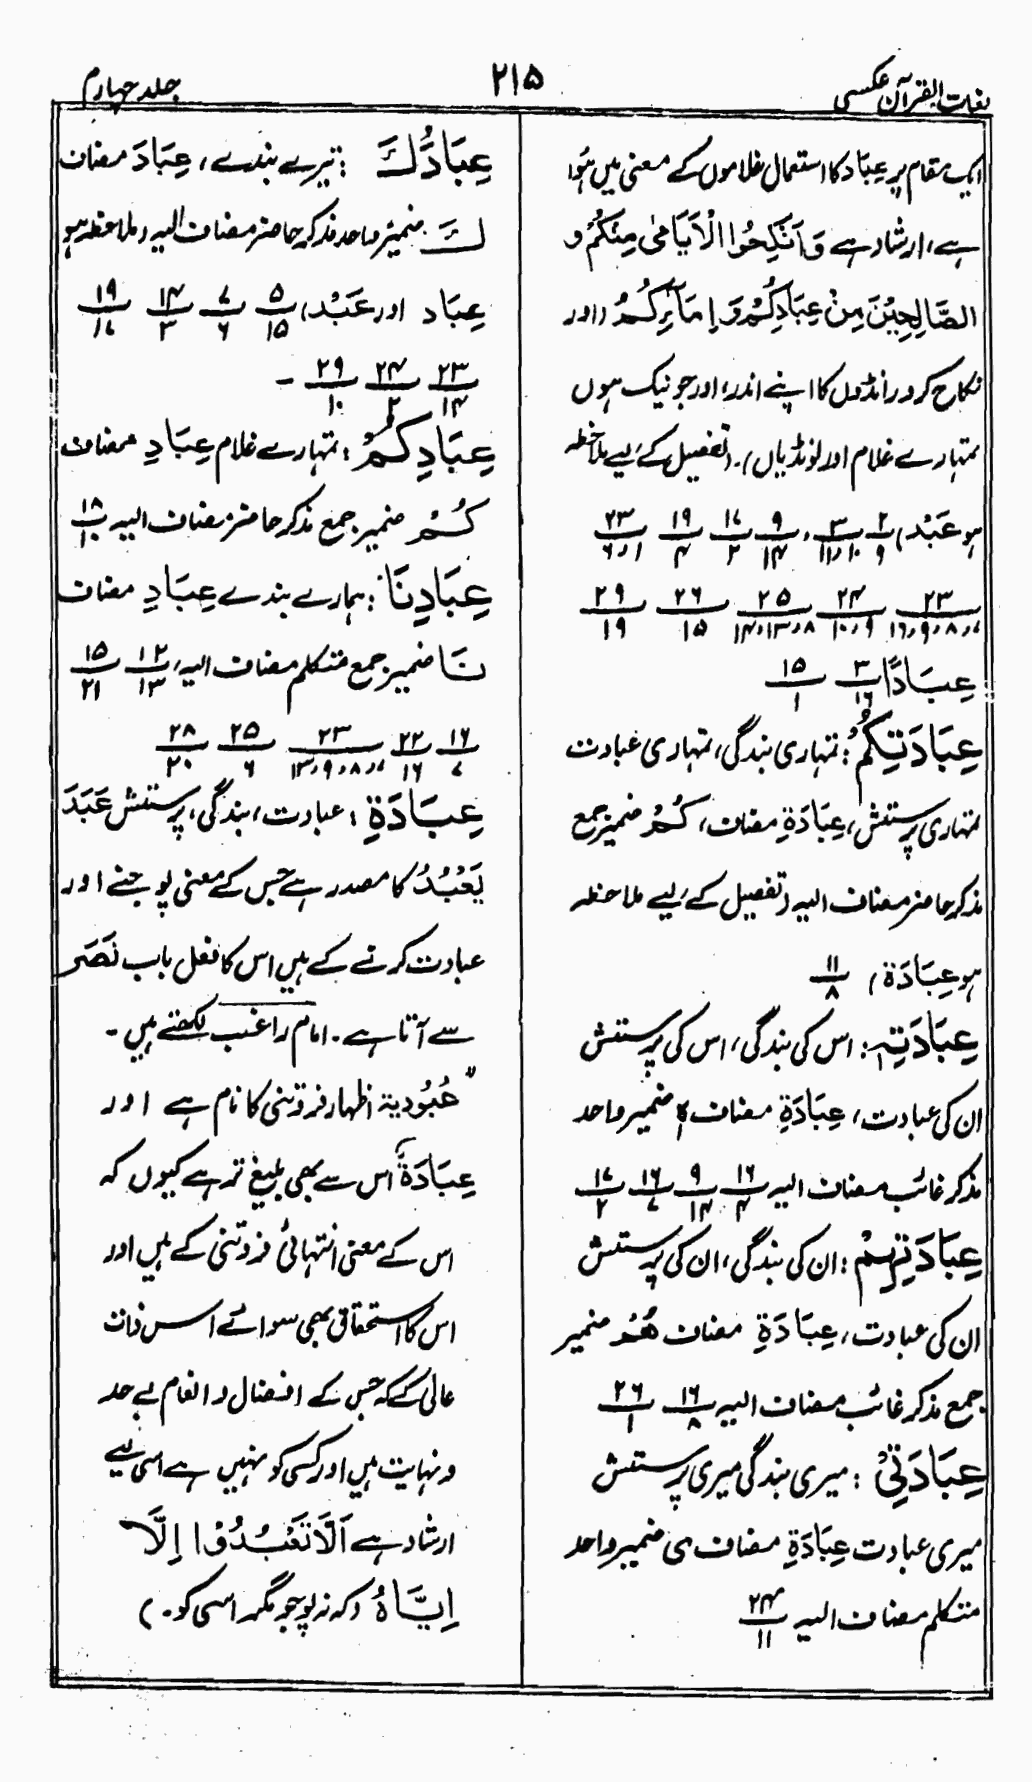 لغات القرآن عکسی
۲۱۵
جلد چہارم
ایک مقام پر عِبَاد کا استعمال غلاموں کے معنی میں ہُوا
ہے، ارشاد ہے وَاَنْكِحُوا الْاَيَامٰى مِنْكُمْ وَ
الصَّالِحِيْنَ مِنْ عِبَادِكُمْ وَ اِمَآئِكُمْ (اور
نکاح کرو رانڈوں کا اپنے اندر، اور جو نیک ہوں
تمہارے غلام اور لونڈیاں)۔ (تفصیل کے لیے ملاحظہ
ہو عَبْد) ۲/۹ ۳/۱۰،۱۱ ۹/۱۴ ۱۷/۲ ۱۹/۴ ۲۳/۱،۶
۲۳/۷،۸،۹،۱۶ ۲۴/۹،۱۰ ۲۵/۸،۱۳،۱۴ ۲۶/۱۵ ۲۹/۱۹
عِبَادًا ۳/۱۶ ۱۵/۱
عِبَادَتِكُمْ: تمہاری بندگی، تمہاری عبادت
تمہاری پرستش، عِبَادَةِ مضاف، كُمْ ضمیر جمع
مذکر حاضر مضاف الیہ (تفصیل کے لیے ملاحظہ
ہو عِبَادَة) ۱۱/۸
عِبَادَتِہٖ: اس کی بندگی، اس کی پرستش
ان کی عبادت، عِبَادَةِ مضاف ہٖ ضمیر واحد
مذکر غائب مضاف الیہ ۱۶/۴ ۹/۱۴ ۱۶/۷ ۱۷/۲
عِبَادَتِهِمْ: ان کی بندگی، ان کی پرستش
ان کی عبادت، عِبَادَةِ مضاف هُمْ ضمیر
جمع مذکر غائب مضاف الیہ ۱۶/۸ ۲۶/۱
عِبَادَتِيْ: میری بندگی میری پرستش
میری عبادت عِبَادَةِ مضاف ی ضمیر واحد
متکلم مضاف الیہ ۲۴/۱۱
عِبَادُكَ: تیرے بندے، عِبَادَ مضاف
كَ ضمیر واحد مذکر حاضر مضاف الیہ (ملاحظہ ہو
عِبَاد اور عَبْد) ۵/۱۵ ۷/۶ ۱۴/۳ ۱۹/۱۷
۲۳/۱۴ ۲۴/۲ ۲۹/۱۰ -
عِبَادِكُمْ: تمہارے غلام عِبَادِ مضاف
كُمْ ضمیر جمع مذکر حاضر مضاف الیہ ۱۸/۱۰
عِبَادِنَا: ہمارے بندے عِبَادِ مضاف
نَا ضمیر جمع متکلم مضاف الیہ، ۱۲/۱۳ ۱۵/۲۱
۱۶/۷ ۲۲/۱۶ ۲۳/۷،۸،۹،۱۳ ۲۵/۶ ۲۸/۲۰
عِبَادَةِ: عبادت، بندگی، پرستش عَبَدَ
يَعْبُدُ کا مصدر ہے جس کے معنی پوجنے اور
عبادت کرنے کے ہیں اس کا فعل باب نَصَرَ
سے آتا ہے۔ امام راغب لکھتے ہیں۔
" عُبُودیۃ اظہار فروتنی کا نام ہے اور
عِبَادَةٌ اس سے بھی بلیغ تر ہے کیوں کہ
اس کے معنی انتہائی فروتنی کے ہیں اور
اس کا استحقاق بھی سوائے اس ذات
عالی کے کہ جس کے افضال و انعام بے حد
و نہایت ہیں اور کسی کو نہیں ہے اسی لیے
ارشاد ہے اَلَّا تَعْبُدُوْا اِلَّا
اِيَّاهُ (کہ نہ پوجو مگر اسی کو۔)